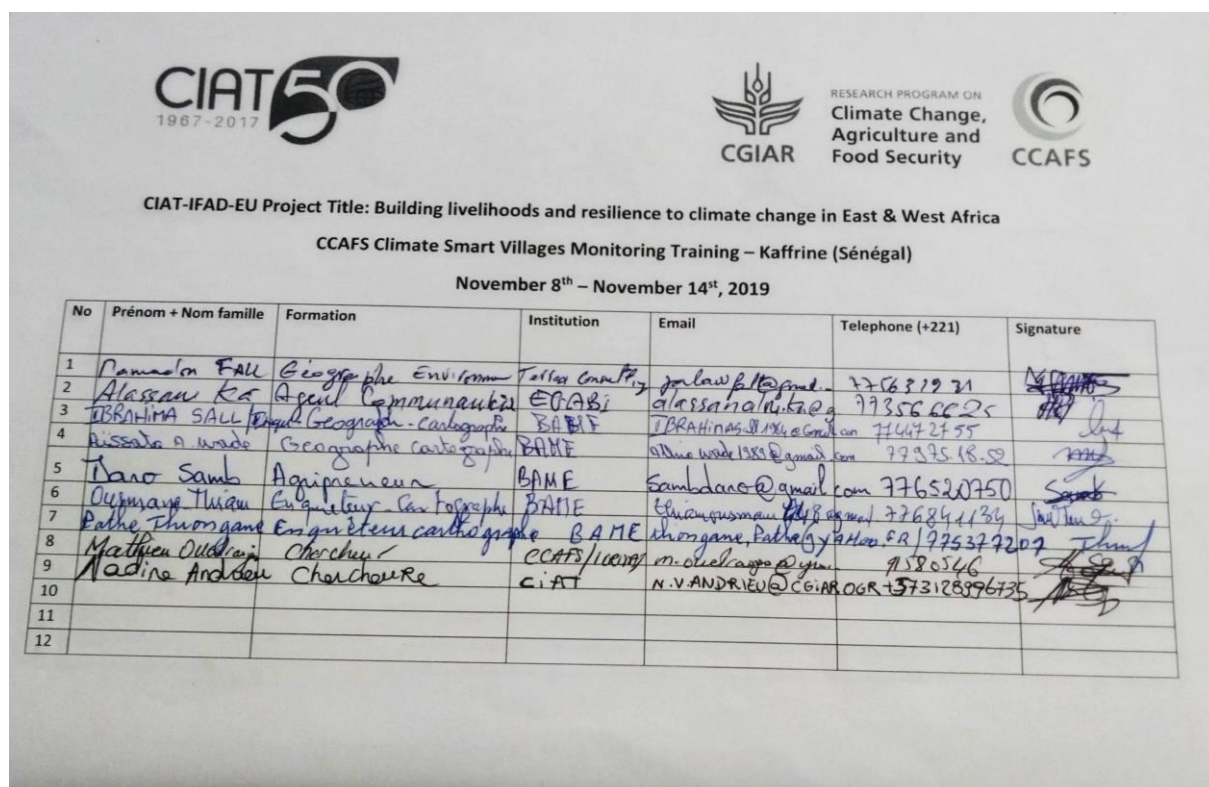 CIAT 50
1967-2017
CGIAR
RESEARCH PROGRAM ON
Climate Change,
Agriculture and
Food Security
CCAFS
CIAT-IFAD-EU Project Title: Building livelihoods and resilience to climate change in East & West Africa
CCAFS Climate Smart Villages Monitoring Training – Kaffrine (Sénégal)
November 8th – November 14st, 2019
No Prénom + Nom famille Formation Institution Email Telephone (+221) Signature
1 FALL Géographe
2 Alassan Ka Agent 773566625
3 IBRAHIMA SALL Geograph - Cartographe BAME 774472755
4 Aissata A. Wade Geographe cartographe BAME 77975.18.52
5 Dano Samb Agripreneur BAME Sambdano@gmail.com 776520750
6 Ousmane Thiam Enquêteur - Cartographe BAME 776841134
7 Pathe Thiongane Enquêteur carthographe BAME 775377207
8 Mathieu Chercheur 9580546
9 Nadine Andrieu Chercheure CIAT N.V.ANDRIEU@CGIAR.OGR +573128996735
10
11
12